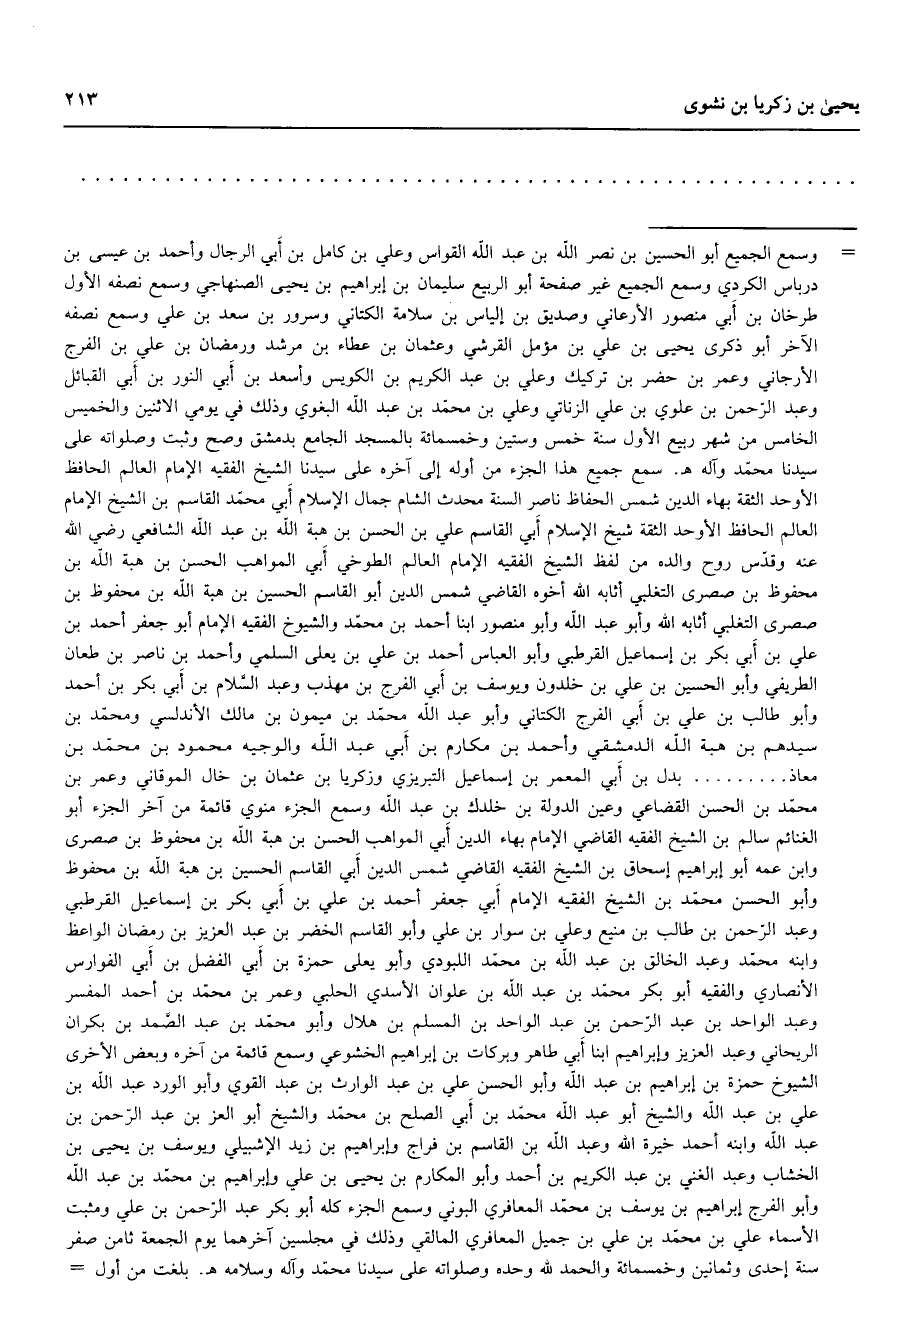 يحيىٰ بن زكريا بن نشوى ٢١٣
. . . . . . . . . . . . . . . . . . . . . . . . . . . . . . . . . . . . . . . . . . . . . . . . . . . . . . . .
= وسمع الجميع أبو الحسين بن نصر الله بن عبد الله القواس وعلي بن كامل بن أبي الرجال وأحمد بن عيسى بن
درباس الكردي وسمع الجميع غير صفحة أبو الربيع سليمان بن إبراهيم بن يحيى الصنهاجي وسمع نصفه الأول
طرخان بن أبي منصور الأرعاني وصديق بن إلياس بن سلامة الكتاني وسرور بن سعد بن علي وسمع نصفه
الآخر أبو ذكرى يحيى بن علي بن مؤمل القرشي وعثمان بن عطاء بن مرشد ورمضان بن علي بن الفرج
الأرجاني وعمر بن حضر بن تركيك وعلي بن عبد الكريم بن الكويس وأسعد بن أبي النور بن أبي القبائل
وعبد الرّحمن بن علوي بن علي الزناتي وعلي بن محمّد بن عبد الله البغوي وذلك في يومي الاثنين والخميس
الخامس من شهر ربيع الأول سنة خمس وستين وخمسمائة بالمسجد الجامع بدمشق وصح وثبت وصلواته على
سيدنا محمّد وآله هـ. سمع جميع هذا الجزء من أوله إلى آخره على سيدنا الشيخ الفقيه الإمام العالم الحافظ
الأوحد الثقة بهاء الدين شمس الحفاظ ناصر السنة محدث الشام جمال الإسلام أبي محمّد القاسم بن الشيخ الإمام
العالم الحافظ الأوحد الثقة شيخ الإسلام أبي القاسم علي بن الحسن بن هبة الله بن عبد الله الشافعي رضي الله
عنه وقدّس روح والده من لفظ الشيخ الفقيه الإمام العالم الطوخي أبي المواهب الحسن بن هبة الله بن
محفوظ بن صصرى التغلبي أثابه الله أخوه القاضي شمس الدين أبو القاسم الحسين بن هبة الله بن محفوظ بن
صصرى التغلبي أثابه الله وأبو عبد الله وأبو منصور ابنا أحمد بن محمّد والشيوخ الفقيه الإمام أبو جعفر أحمد بن
علي بن أبي بكر بن إسماعيل القرطبي وأبو العباس أحمد بن علي بن يعلى السلمي وأحمد بن ناصر بن طعان
الطريفي وأبو الحسين بن علي بن خلدون ويوسف بن أبي الفرج بن مهذب وعبد السَّلام بن أبي بكر بن أحمد
وأبو طالب بن علي بن أبي الفرج الكتاني وأبو عبد الله محمّد بن ميمون بن مالك الأندلسي ومحمّد بن
سيدهم بن هبة الله الدمشقي وأحمد بن مكارم بن أبي عبد الله والوجيه محمود بن محمّد بن
معاذ.......... بدل بن أبي المعمر بن إسماعيل التبريزي وزكريا بن عثمان بن خال الموقاني وعمر بن
محمّد بن الحسن القضاعي وعين الدولة بن خلدك بن عبد الله وسمع الجزء منوي قائمة من آخر الجزء أبو
الغنائم سالم بن الشيخ الفقيه القاضي الإمام بهاء الدين أبي المواهب الحسن بن هبة الله بن محفوظ بن صصرى
وابن عمه أبو إبراهيم إسحاق بن الشيخ الفقيه القاضي شمس الدين أبي القاسم الحسين بن هبة الله بن محفوظ
وأبو الحسن محمّد بن الشيخ الفقيه الإمام أبي جعفر أحمد بن علي بن أبي بكر بن إسماعيل القرطبي
وعبد الرّحمن بن طالب بن منيع وعلي بن سوار بن علي وأبو القاسم الخضر بن عبد العزيز بن رمضان الواعظ
وابنه محمّد وعبد الخالق بن عبد الله بن محمّد اللبودي وأبو يعلى حمزة بن أبي الفضل بن أبي الفوارس
الأنصاري والفقيه أبو بكر محمّد بن عبد الله بن علوان الأسدي الحلبي وعمر بن محمّد بن أحمد المفسر
وعبد الواحد بن عبد الرّحمن بن عبد الواحد بن المسلم بن هلال وأبو محمّد بن عبد الصَّمد بن بكران
الريحاني وعبد العزيز وإبراهيم ابنا أبي طاهر وبركات بن إبراهيم الخشوعي وسمع قائمة من آخره وبعض الأخرى
الشيوخ حمزة بن إبراهيم بن عبد الله وأبو الحسن علي بن عبد الوارث بن عبد القوي وأبو الورد عبد الله بن
علي بن عبد الله والشيخ أبو عبد الله محمّد بن أبي الصلح بن محمّد والشيخ أبو العز بن عبد الرّحمن بن
عبد الله وابنه أحمد خيرة الله وعبد الله بن القاسم بن فراج وإبراهيم بن زيد الإشبيلي ويوسف بن يحيى بن
الخشاب وعبد الغني بن عبد الكريم بن أحمد وأبو المكارم بن يحيى بن علي وإبراهيم بن محمّد بن عبد الله
وأبو الفرج إبراهيم بن يوسف بن محمّد المعافري البوني وسمع الجزء كله أبو بكر عبد الرّحمن بن علي ومثبت
الأسماء علي بن محمّد بن علي بن جميل المعافري المالقي وذلك في مجلسين آخرهما يوم الجمعة ثامن صفر
سنة إحدى وثمانين وخمسمائة والحمد لله وحده وصلواته على سيدنا محمّد وآله وسلامه هـ. بلغت من أول =